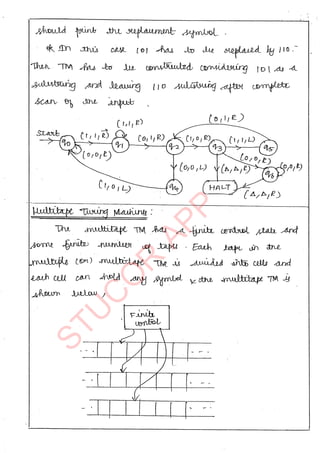 should print the replacement symbol.
* In this case 101 has to be replaced by 110.
Then TM has to be constructed considering 101 as a
substring and leaving 110 substring after complete
scan of the input.
(1,1,R)
(0,1,R)
Start
(1,1,R)
(0,1,R)
(1,0,R)
(1,1,L)
q0
q1
q2
q3
q5
(0,0,R)
(0,0,R)
(0,0,R)
(0,0,L)
(Δ,Δ,R)
q6
(1,0,L)
q4
HALT
(Δ,Δ,R)
Multitape Turing Machine:
The multitape TM has a finite control state and
some finite number of tapes. Each tape in the
multiple (or) multitape TM is divided into cells and
each cell can hold any symbol & the multitape TM is
shown below,
Finite
control
STUCOR APP